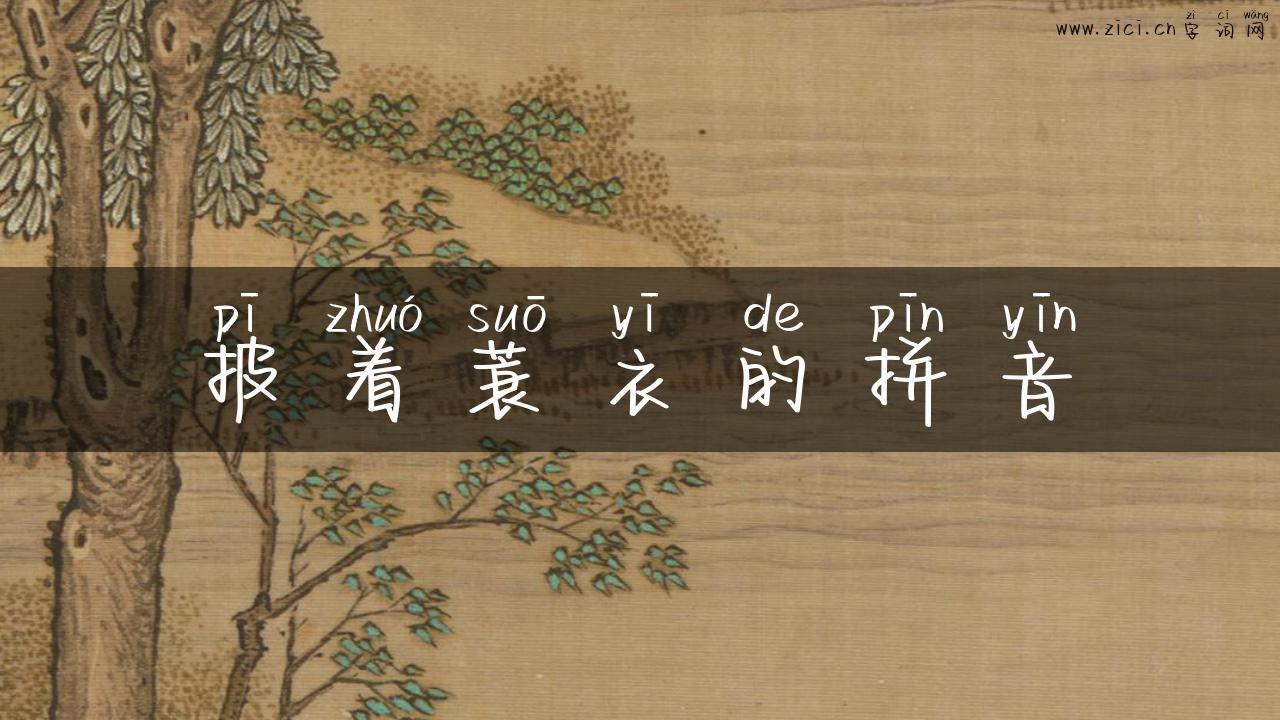 zì cí wǎng
www.zici.cn 字词网
pī zhuó suō yī de pīn yīn
披着蓑衣的拼音